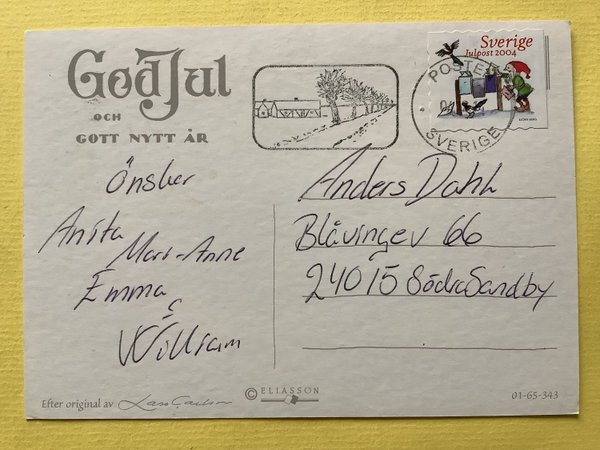 God Jul
OCH
GOTT NYTT ÅR
önsker
Anita
Mari-Anne
Emma
&
William
Sverige
Julpost 2004
POSTEN
SVERIGE
Anders Dahl
Blåvingev 66
24015 Södra Sandby
Efter original av
© ELIASSON
01-65-343